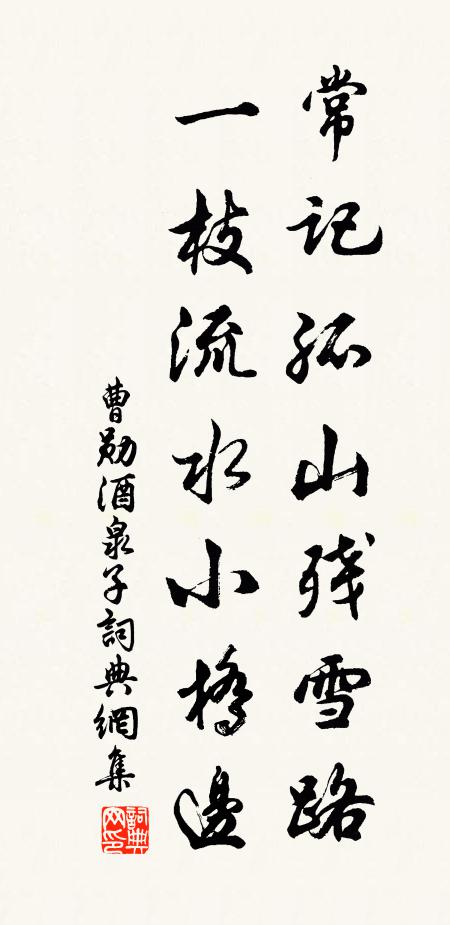 常记孤山残雪路
一枝流水小桥边
曹勋酒泉子詞典網集
詞典网印